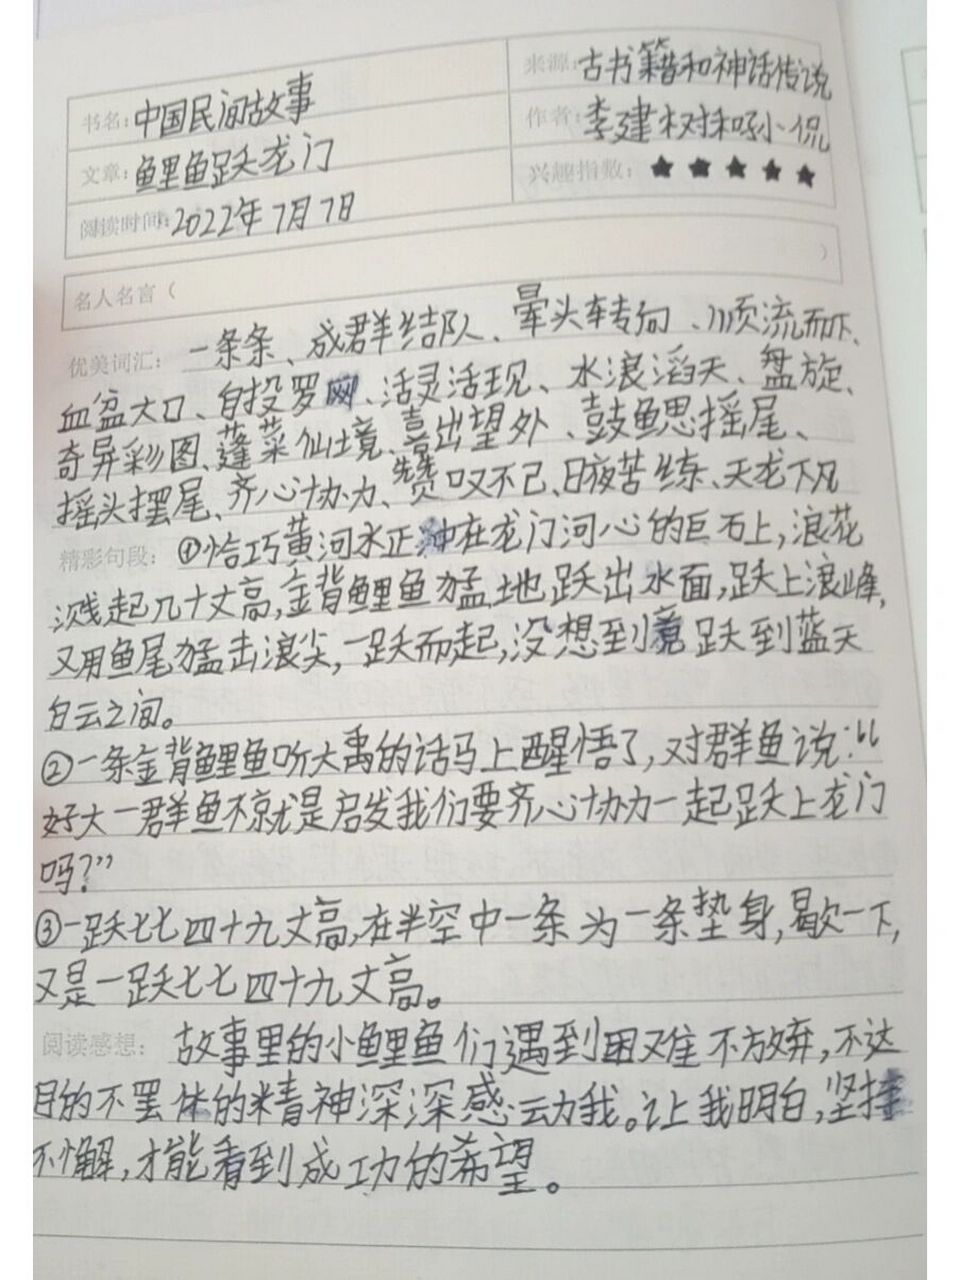 书名：中国民间故事
来源：古书籍和神话传说
文章：鲤鱼跃龙门
作者：李建树和孙小侃
阅读时间：2022年7月7日
兴趣指数：★★★★★
名人名言（ ）
优美词汇：一条条、成群结队、晕头转向、顺流而下、
血盆大口、自投罗网、活灵活现、水浪滔天、盘旋、
奇异彩图、蓬莱仙境、喜出望外、鼓鱼思摇尾、
摇头摆尾、齐心协力、赞叹不已、日夜苦练、天龙下凡
精彩句段：①恰巧黄河水正冲在龙门河心的巨石上，浪花
溅起几十丈高，金背鲤鱼猛地跃出水面，跃上浪峰，
又用鱼尾猛击浪尖，一跃而起，没想到竟跃到蓝天
白云之间。
②一条金背鲤鱼听大禹的话马上醒悟了，对群鱼说：“
好大一群鱼不就是启发我们要齐心协力一起跃上龙门
吗？”
③一跃七七四十九丈高，在半空中一条为一条垫身，歇一下，
又是一跃七七四十九丈高。
阅读感想：故事里的小鲤鱼们遇到困难不放弃，不达
目的不罢休的精神深深感动我。让我明白，坚持
不懈，才能看到成功的希望。